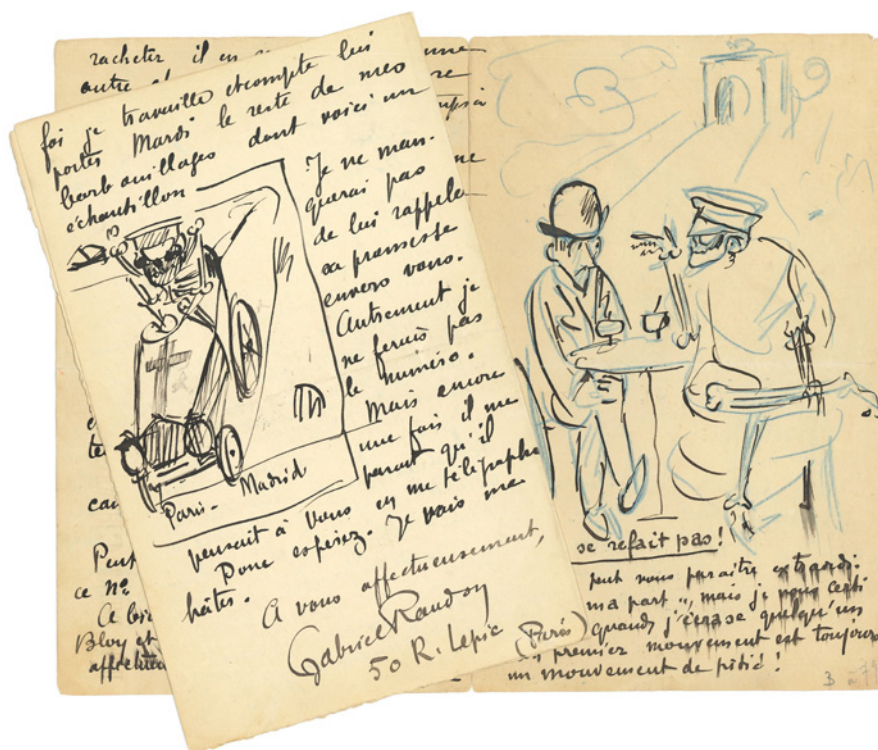 racheter il en
autre
foi je travaille et compte lui
porter Mardi le reste de mes
barbouillages dont voici un
échantillon
Je ne man-
querai pas
de lui rappeler
sa promesse
envers vous.
Autrement je
ne ferais pas
le numéro.
Mais encore
une fois il me
parait qu'il
Paris - Madrid
pensait à vous en me télégraphi
Donc espérez. Je vais me
hâter.
A vous affectueusement,
Gabriel Randon
50 R. Lepic (Paris)
ce nº
Bloy et
se refait pas!
peut vous paraître extraordi:
ma part ,, mais je vous certi
quand j'écrase quelqu'un
premier mouvement est toujours
un mouvement de pitié !